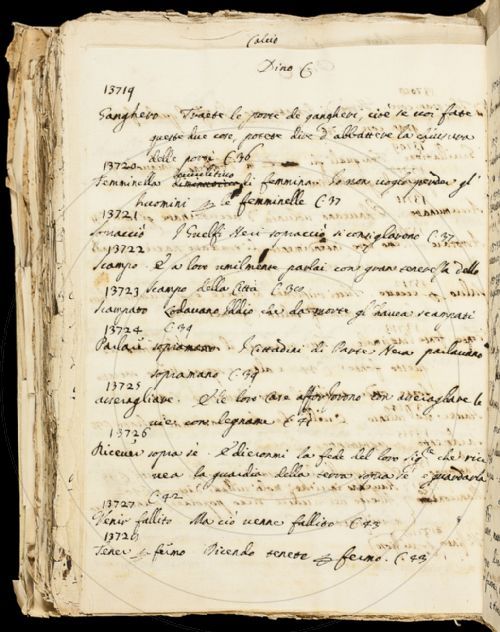 Calcio
Dino C
13719
Ganghero Traete le porte de gangheri, cioè se voi fate
queste due cose, potete dire d'abbattere la chiusura
delle porti C. 36
13720 diminutivo
Femminella di femmina. Io non voglio perder gl'
huomini le femminelle C. 37
13721
I Guelfi Neri sopracciò si consigliarono C. 37
13722
Scampo. E a loro umilmente parlai con gran tenerezza dello
13723 scampo della Città C. 39
Scampato Lodavano Iddio che da morte gl'havea scampati
13724 C. 39
Parlar sopramano. I Cittadini di Parte Nera parlavano
sopramano C. 39
13725
asserragliare. E le loro case afforzorono con asserragliare le
vie con legname C. 41
13726
Ricever sopra se. E dieronmi la fede del loro sig.re che rice
vea la guardia della terra sopra se guardarla
C. 42
13727
Venir fallito Ma ciò venne fallito C. 43
13728
Tener fermo Dicendo tenete fermo. C. 43